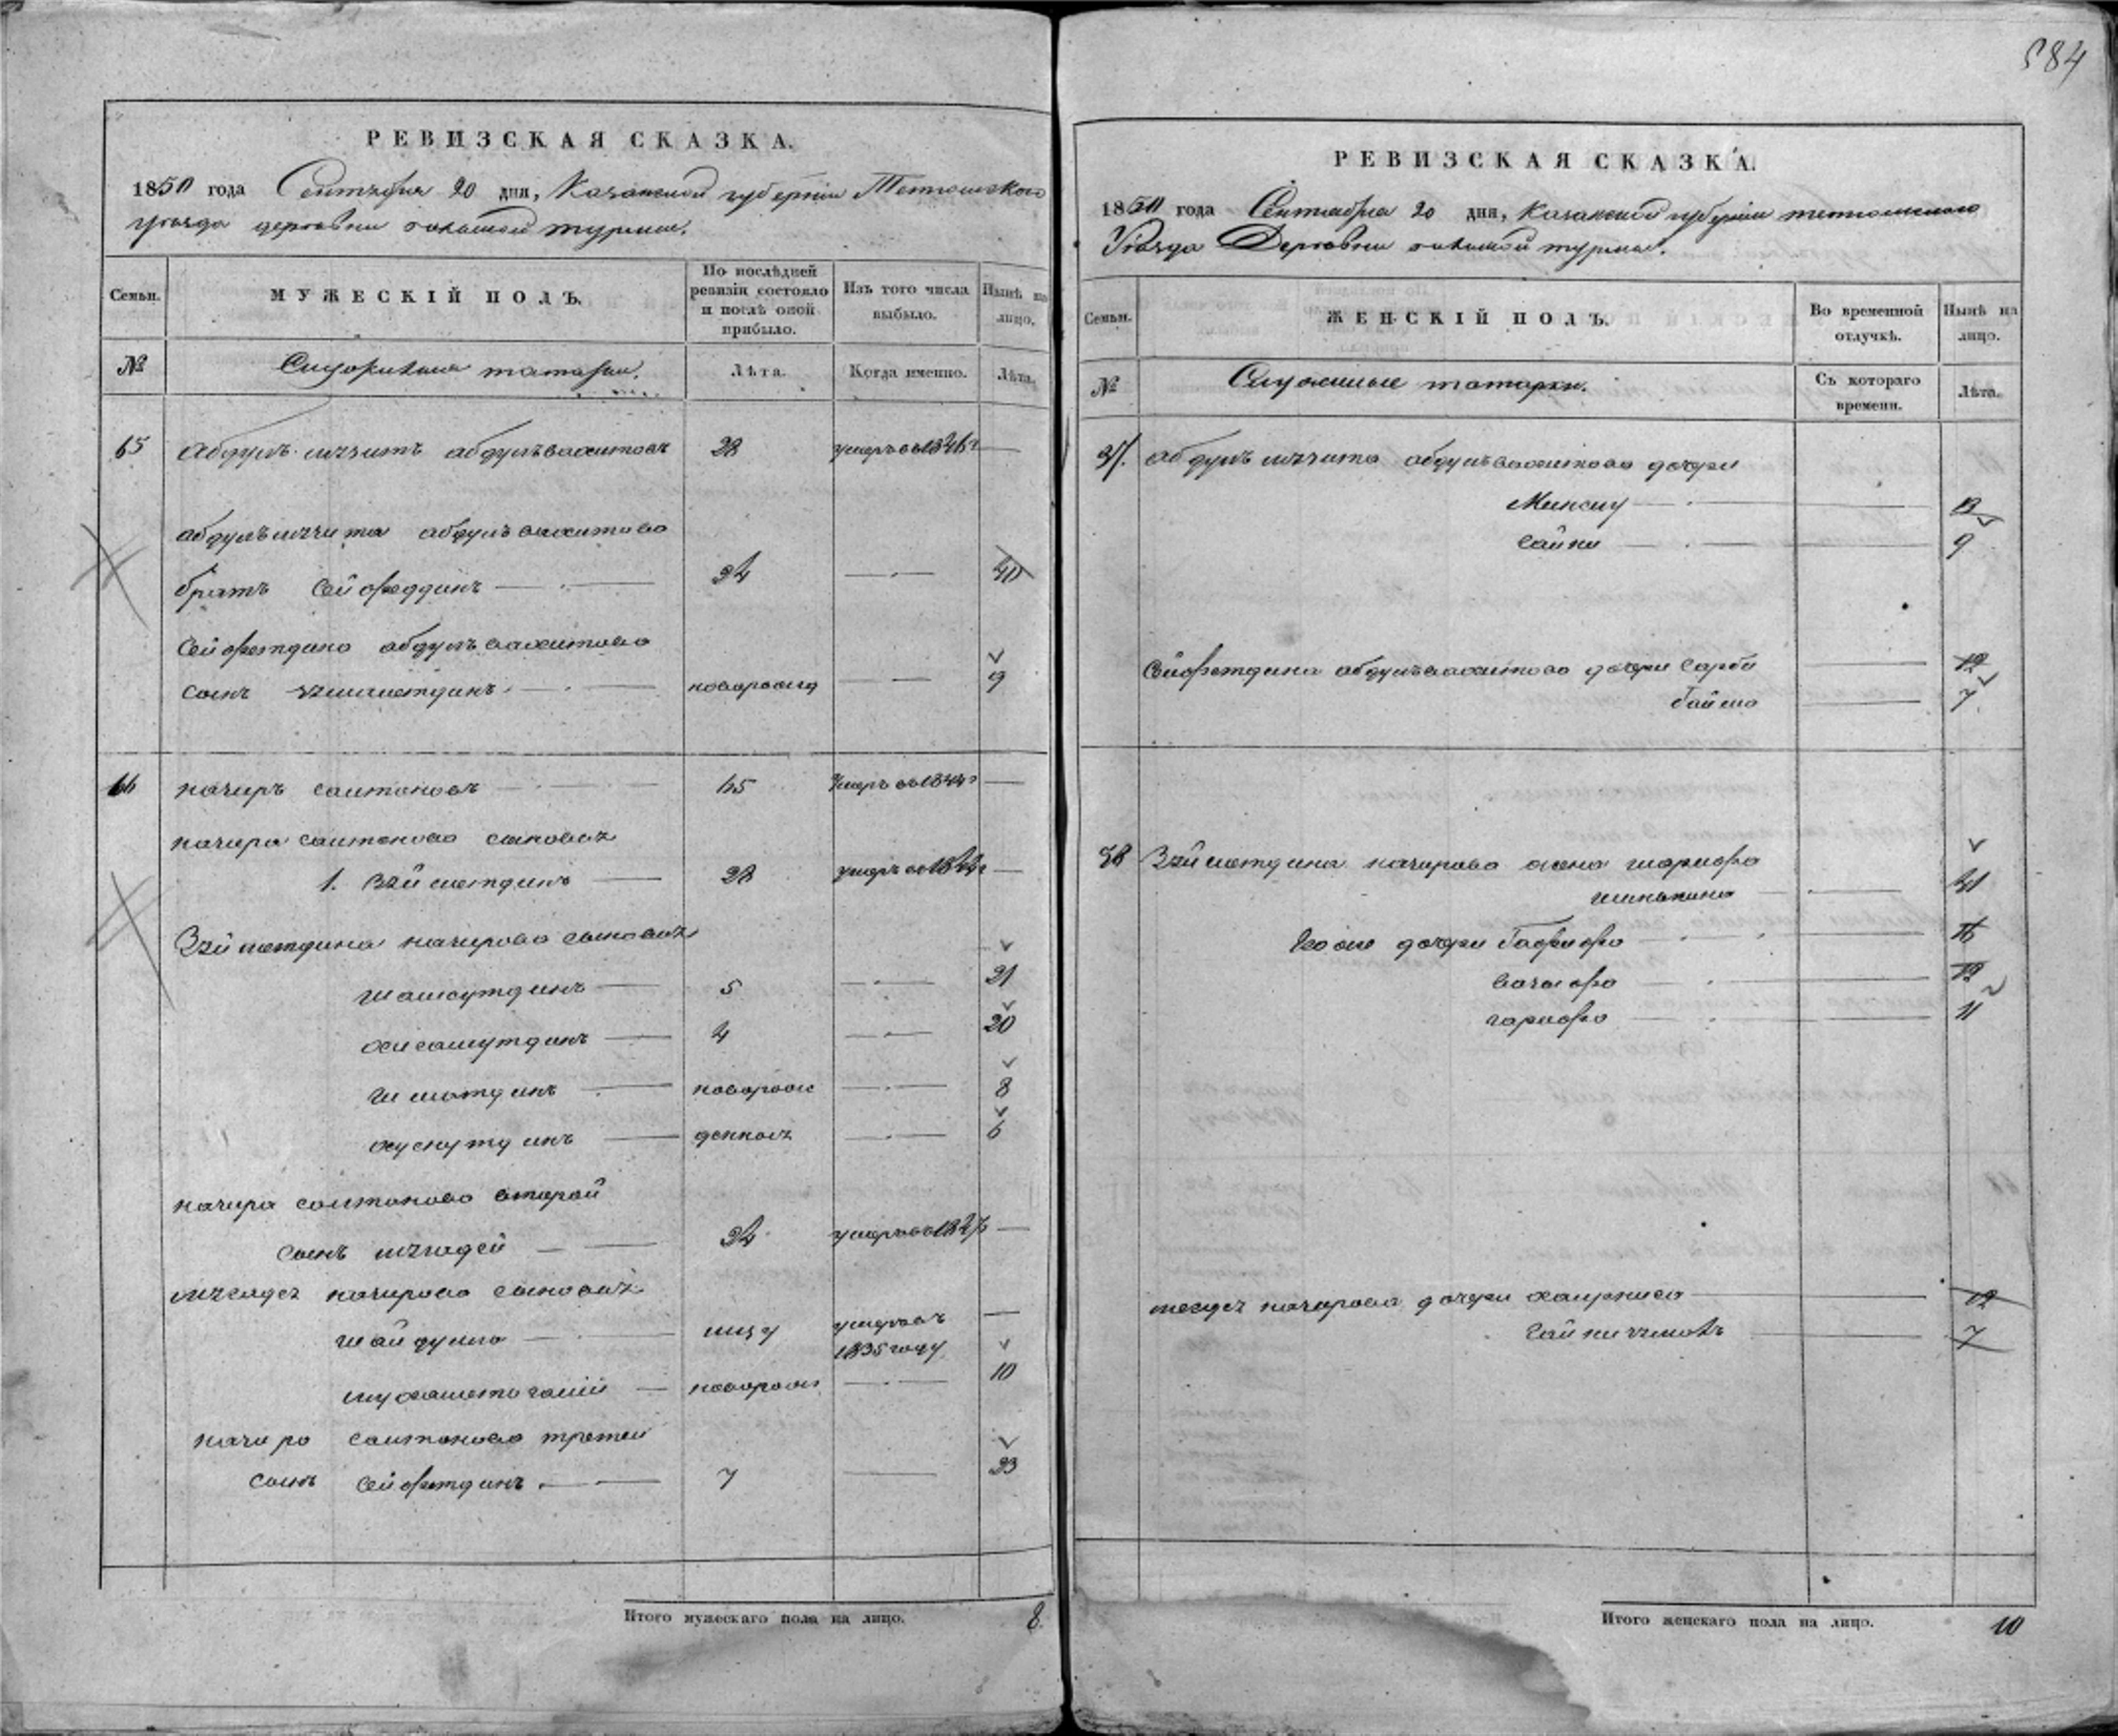 584
РЕВИЗСКАЯ СКАЗКА.
1850 года Сентября 20 дня, Казанской губернии Тетюшского
Уѣзда деревни большой турмы.
Семьи.
МУЖЕСКІЙ ПОЛЪ.
По послѣдней ревизіи состояло и послѣ оной прибыло.
Изъ того числа выбыло.
Нынѣ на лицо.
№
татары.
Лѣта.
Когда именно.
Лѣта.
65 абдулъ мѣзитъ абдулъваахитовъ 28 умеръ въ 1846 г —
абдулъмѣзита абдулъваахитова
братъ Сейфеддинъ — 24 — 40
Сейфетдина абдулъваахитова
сынъ — новорожд — 9
66 начиръ саитановъ — 65 умеръ въ 1844 г —
начира саитанова сыновья
1. Зяйметдинъ — 28 умеръ въ 1842 г —
Зяйметдина начирова сыновья
шамсутдинъ — 5 — 21
хисамутдинъ — 4 — 20
— новорож — 8
хуснутдинъ — денные — 6
начира саитанова второй
сынъ — 24 умеръ въ 1847 —
начирова сыновья
шайдулла — умеръ въ —
1835 году
мухаметогалий — новорож — 10
начира саитанова третей
сынъ Сейфетдинъ — 7 — 23
Итого мужескаго пола на лицо. 8.
РЕВИЗСКАЯ СКАЗКА.
1850 года Сентября 20 дня, Казанской губернии тетюшского
Уѣзда Деревни большой турмы.
Семьи.
ЖЕНСКІЙ ПОЛЪ.
Во временной отлучкѣ.
Нынѣ на лицо.
№
Служилые татарки.
Съ котораго времени.
Лѣта.
абдулъ мѣзита абдулъваахитова дочери
Минсылу — 13
Сайни — 9
Сейфетдина абдулъваахитова дочери Сарби — 12
байма — 7
Зяйметдина начирова жена шарифа
— 41
Его же дочери Гафифа — 16
вачифа — 12
гарифа — 11
начирова дочери хаирниса — 12
— 7
Итого женскаго пола на лицо. 10